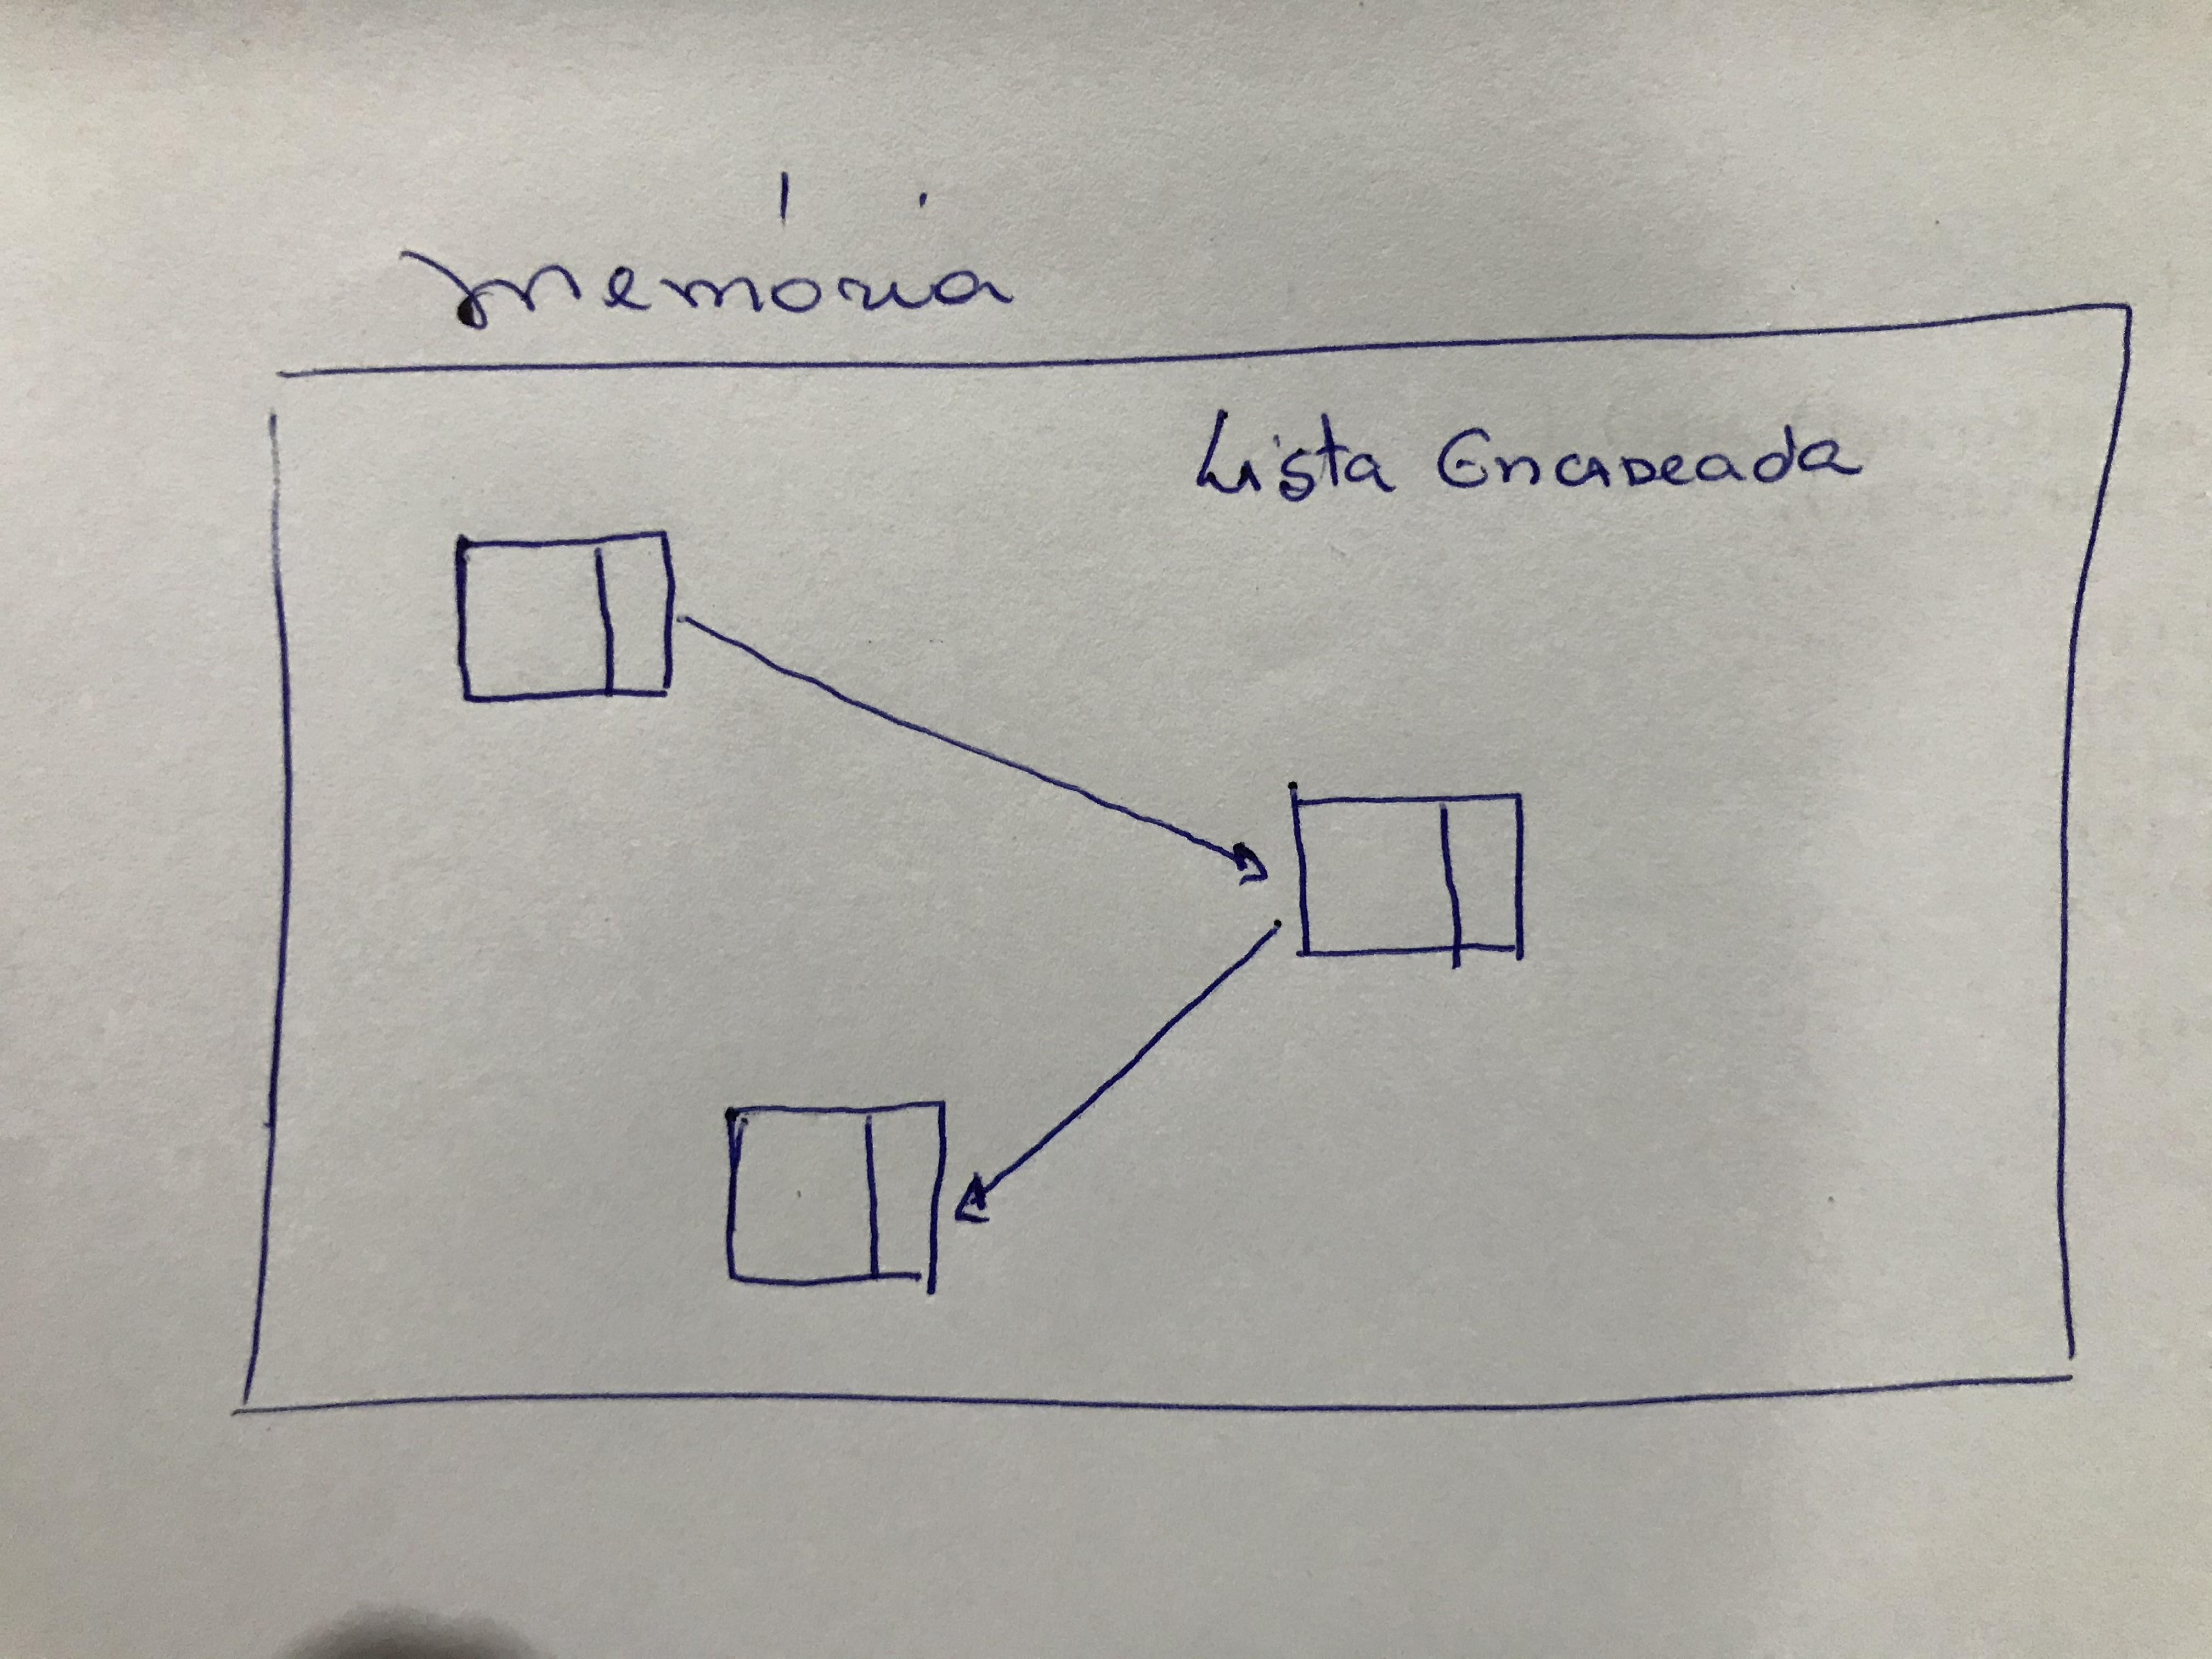 memória
Lista Encadeada